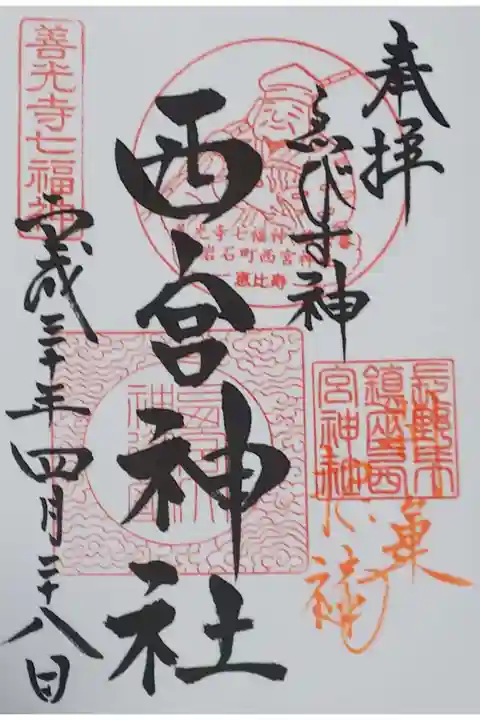 奉拝
ゑびす神
西宮神社
善光寺七福神
平成三十年四月二十八日
光寺七福神
岩石町西宮神
恵比寿
長野市
鎮座西
宮神社